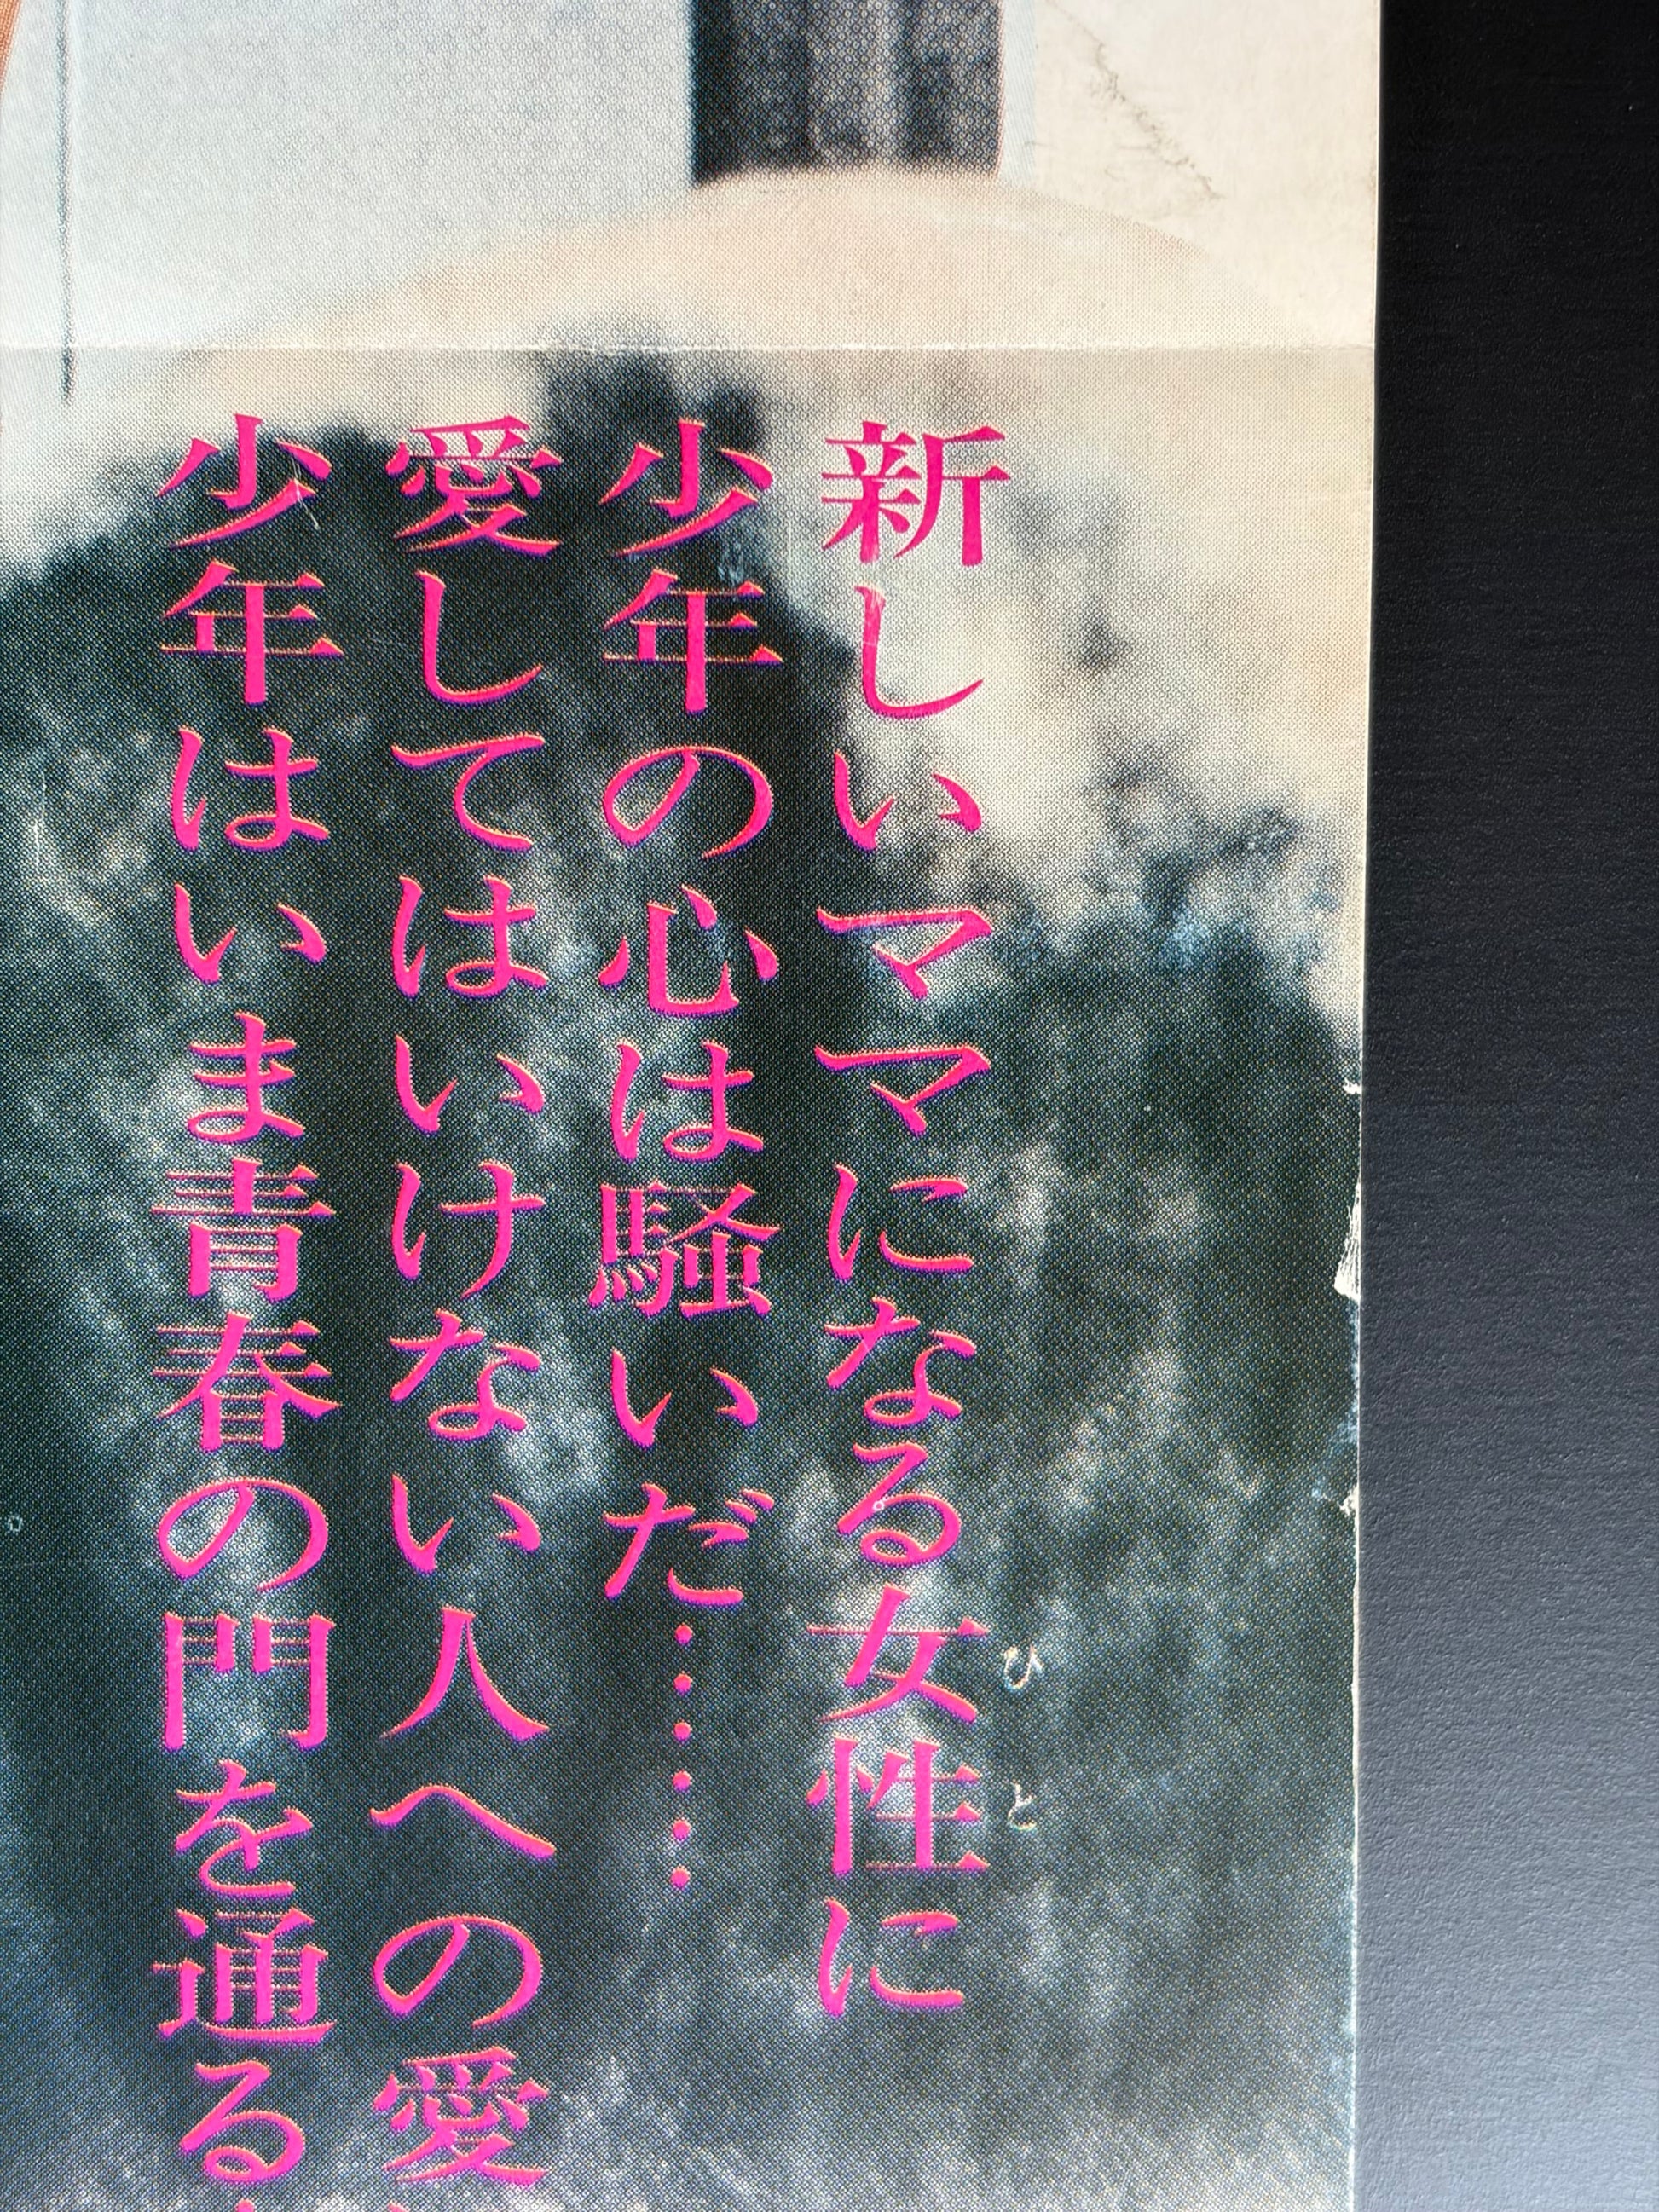 新しいママになる女性に
ひと
少年の心は騒いだ……
愛してはいけない人への愛
少年はいま青春の門を通る